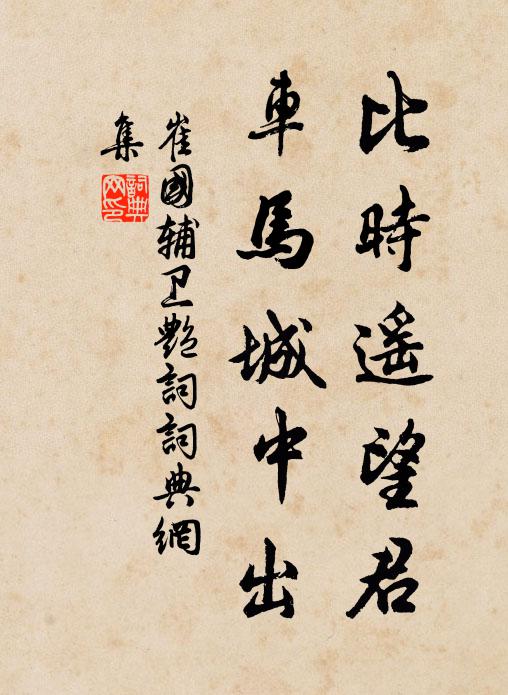 比時遥望君
車馬城中出
崔國輔卫艷詞詞典網
集
詞典
网印